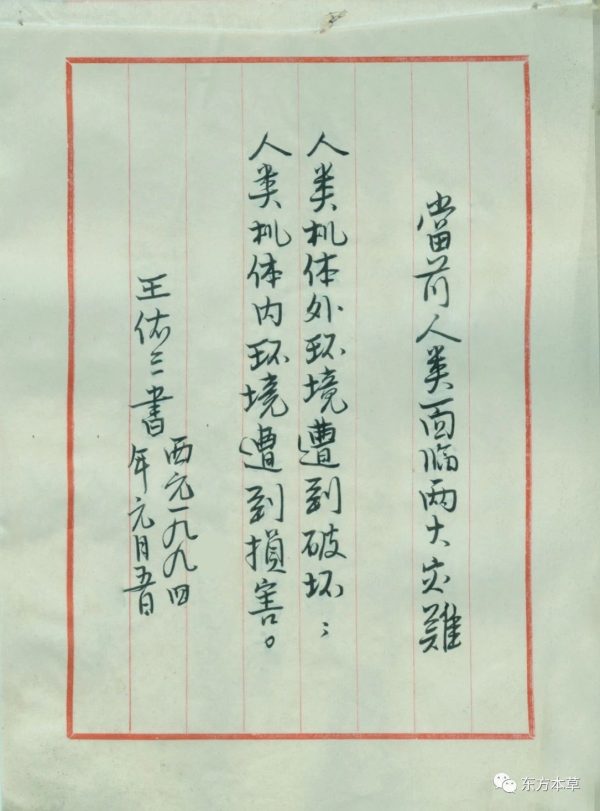 當前人类面临两大灾難
人类机体外环境遭到破坏；
人类机体内环境遭到损害。
王佑三書
西元一九九四
年元月五日
东方本草